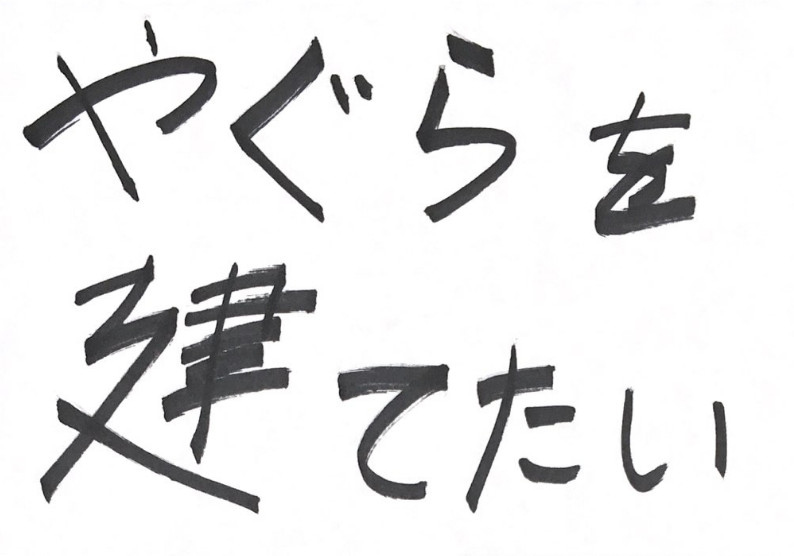 やぐらを
建てたい